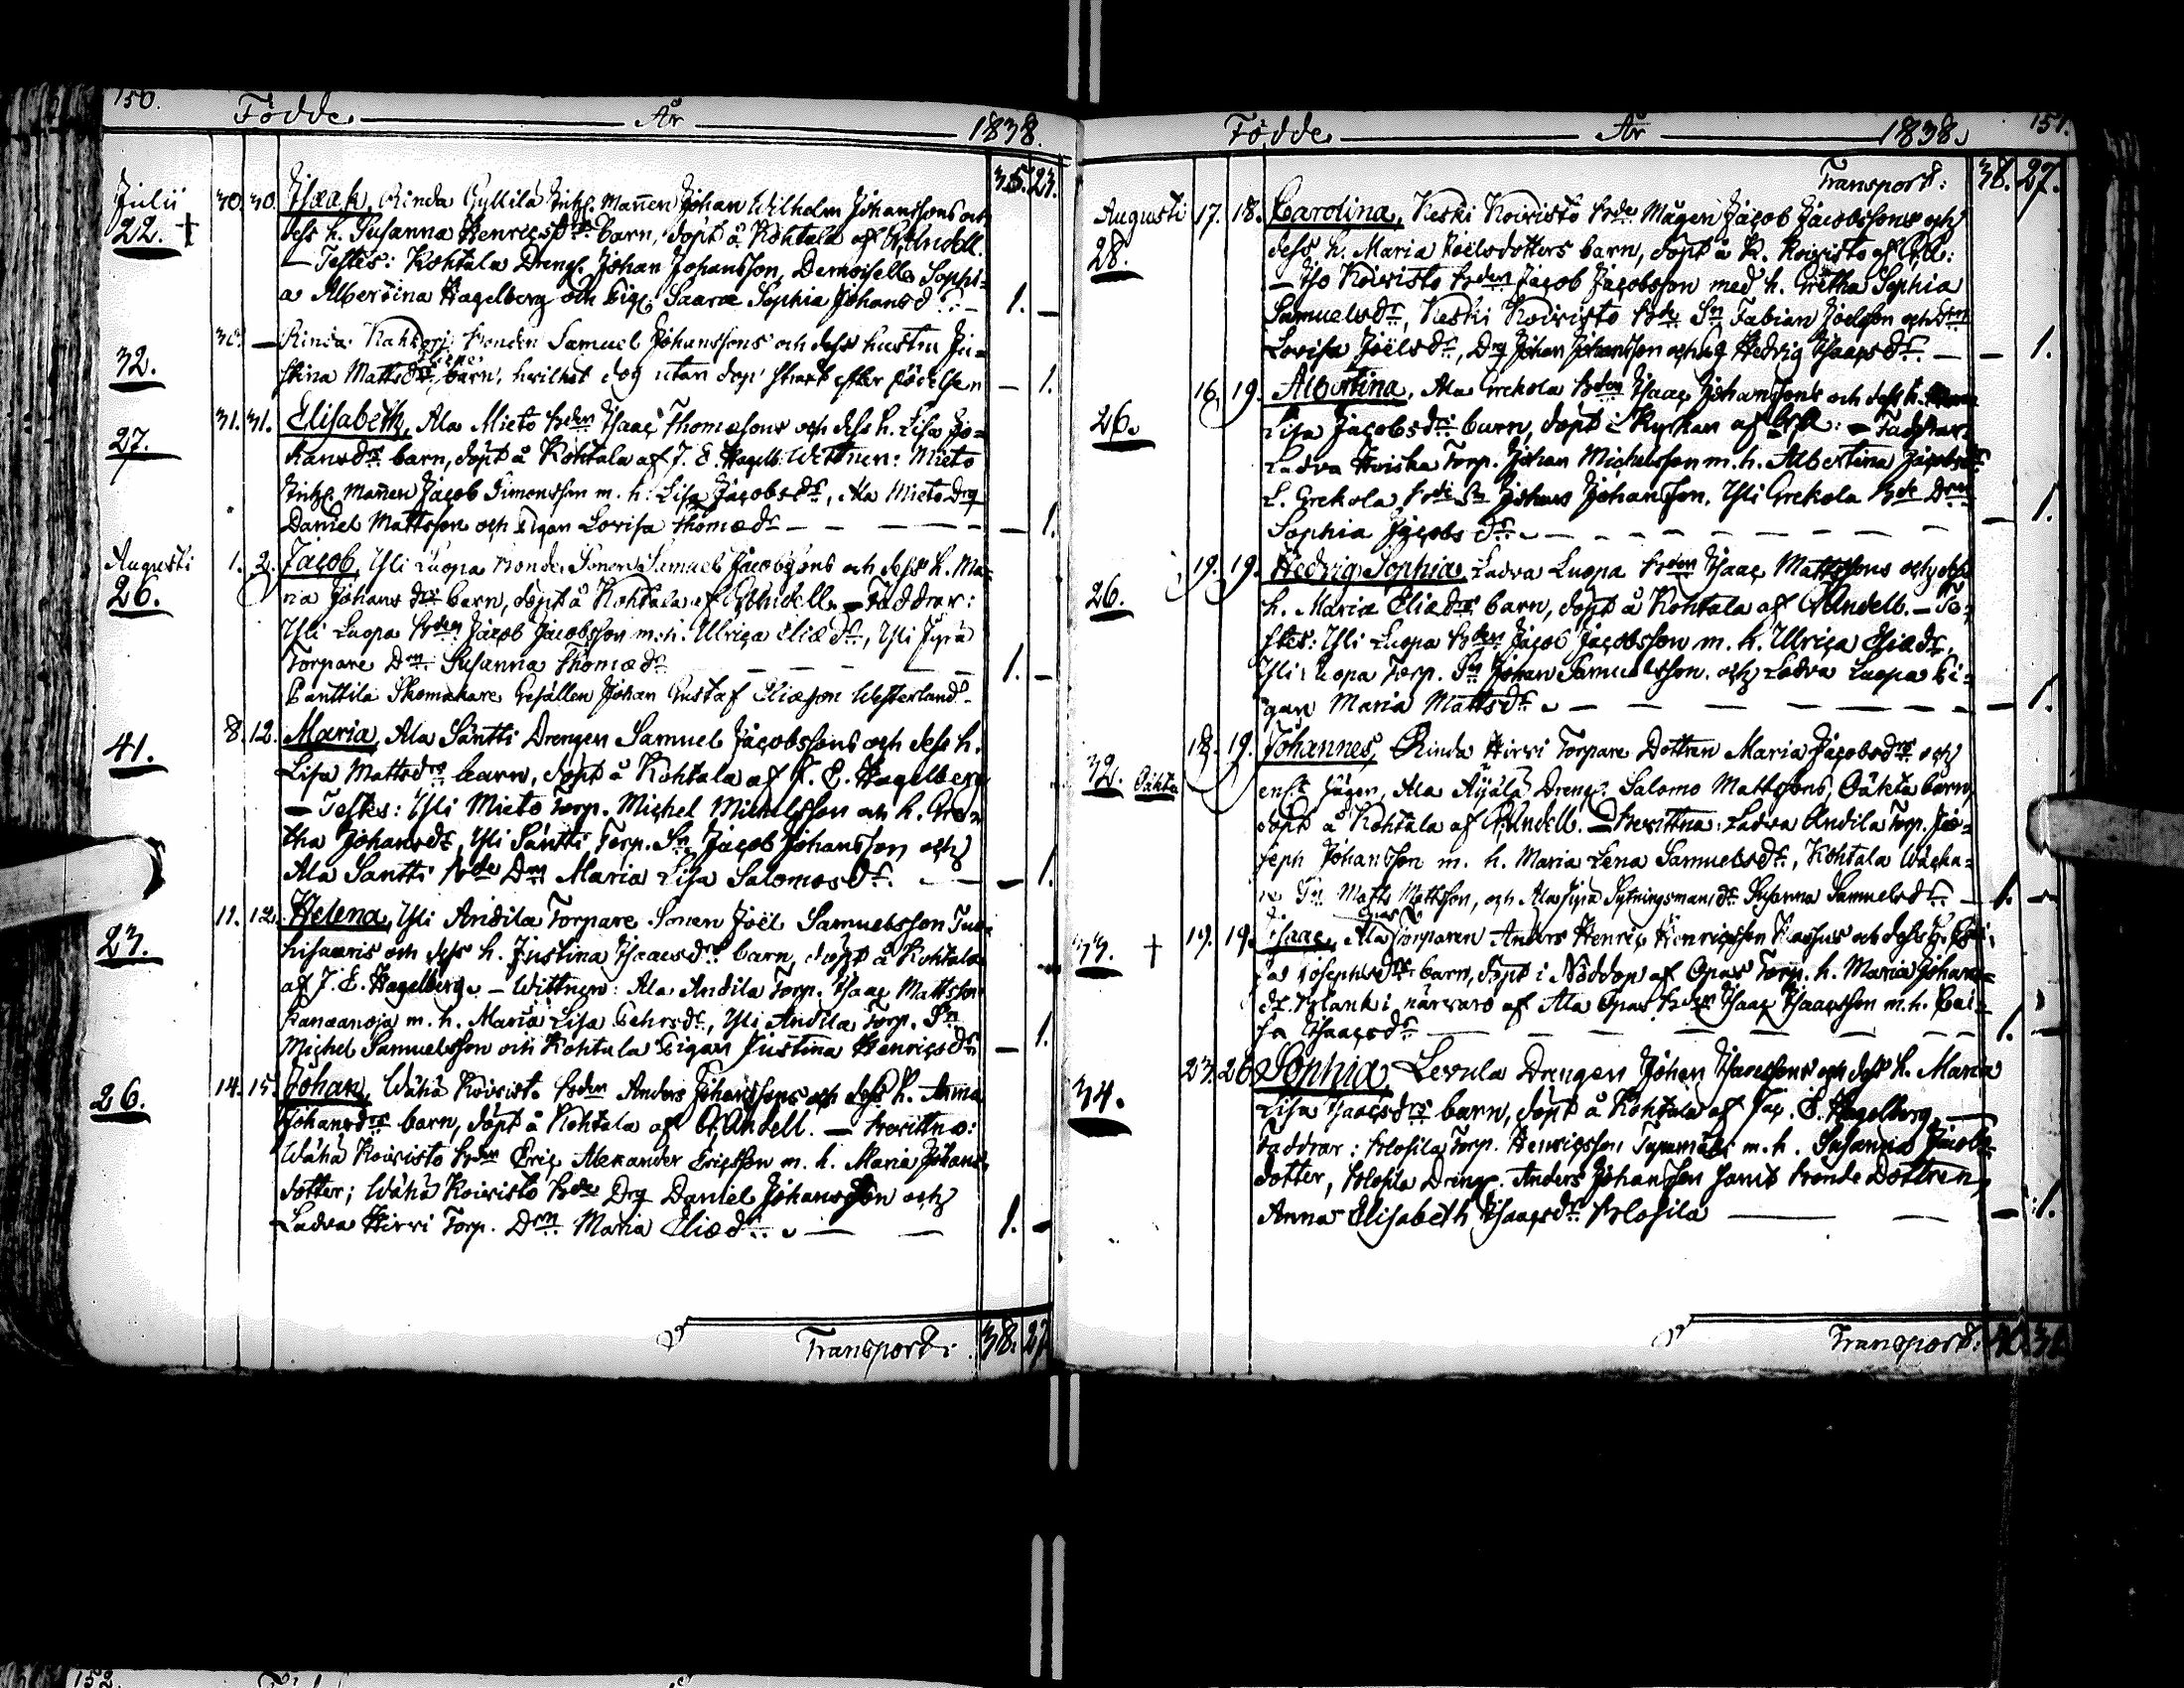 150. Födde År 1838.
35. 23.
Julii 30. 30. Isaak, Rinda Gyllilä Inhs. Mannen Johan Wilhelm Johanssons och
22. + dess h. Susanna Henricsdrs barn, döpt å Kohtala af Andell.
— Testes: Kohtala Dreng. Johan Johansson, Demoiselle Sophi-
a Albertina Hagelberg och Pig. Saara Sophia Johansdr — 1. —
30. — Rinda Bonden Samuel Johanssons och dess hustru Ju-
32. stina Mattsdrs barn, hvilket dog utan dop strax efter födelsen — 1.
31. 31. Elisabeth, Ala Mieto Bden Isaac Thomæsons och dess h. Lisa Jo-
27. hansdrs barn, döpt å Kohtala af J. E. Hagelb. Wittnen: Mieto
Inhs. Mannen Jacob Simonsson m. h. Lisa Jacobsdr, Ala Mieto Drg
Daniel Mattsson och Pigan Lovisa Thomædr — — — — 1.
Augusti 1. 2. Jacob, Yli Luopa Bonde Sonen Samuel Jacobssons och dess h. Ma-
26. ria Johansdrs barn, döpt å Kohtala af Andell. — Faddrar:
Yli Luopa Bden Jacob Jacobsson m. h. Ulrica Eliædr, Yli Jyrä
Torpare Drn Susanna Thomædr — — — — 1. —
Panttila Skomakare Gesällen Johan Gustaf Eliæson Westerlund.
8. 12. Maria, Ala Säntti Drengen Samuel Jacobssons och dess h.
41. Lisa Mattsdrs barn, döpt å Kohtala af J. E. Hagelberg
— Testes: Yli Mieto Torp. Michel Michelsson och h. Gre-
tha Johansdr, Yli Säntti Torp. Sn Jacob Johansson och
Ala Säntti Bde Drn Maria Lisa Salomosdr. — — 1.
11. 12. Helena, Yli Andila Torpare Sonen Joël Samuelsson Juo-
23. hisaaris och dess h. Justina Isaacsdrs barn, döpt å Kohtala
af J. E. Hagelberg. — Wittnen: Ala Andila Torp. Isaac Mattsson
Kanæanoja m. h. Maria Lisa Pehrsdr, Yli Andila Torp. Sn
Michel Samuelsson och Kohtala Pigan Justina Henricsdr — 1.
14. 15. Johan, Wähä Koivisto Bden Anders Johanssons och dess h. Anna
26. Johansdrs barn, döpt å Kohtala af Andell. — Bewittna:
Wähä Koivisto Bden Eric Alexander Ericsson m. h. Maria Johans-
dotter; Wähä Koivisto Bde Drg Daniel Johansson och
Ladva Hirvi Torp. Drn Maria Eliædr. — — 1. —
Transport: 38. 27.
Födde År 1838. 151.
Transport: 38. 27.
Augusti 17. 18. Carolina, Keski Koivisto Bde Mågen Jacob Jacobssons och
28. dess h. Maria Joëlsdotters barn, döpt å K. Koivisto af
— Iso Koivisto Bden Jacob Jacobsson med h. Gretha Sophia
Samuelsdr, Keski Koivisto Bde Sn Fabian Joelsson och Drn
Lovisa Joëlsdr, Drg Johan Johansson och Hedvig Isaacsdr. — — 1.
16. 19. Albertina, Ala Grekola Bden Isaac Johanssons och dess h.
26. Lisa Jacobsdrs barn, döpt i Kyrkan af — Faddrar:
Ladva Torp. Johan Michelsson m. h. Albertina Jacobsdr
L. Grekola Bde Sn Johan Johansson, Yli Grekola Bde Drn
Sophia Jacobsdr. — — — — — — 1.
19. 19. Hedvig Sophia, Ladva Luopa Bden Isaac Mattssons och dess
26. h. Maria Eliædrs barn, döpt å Kohtala af Andell. — Te-
stes: Yli Luopa Bden Jacob Jacobsson m. h. Ulrica Eliædr,
Yli Luopa Torp. Sn Johan Samuelsson och Ladva Luopa Pi-
gan Maria Mattsdr. — — — — — 1.
18. 19. Johannes, Rinda Hirvi Torpare Dottren Maria Jacobsdrs och
32. Oäkta enl. sägen, Ala Äijälä Dreng. Salomo Mattssons, Oäkta barn,
döpt å Kohtala af Andell. — Bevittna: Ladva Andila Torp. Jo-
seph Johansson m. h. Maria Lena Samuelsdr, Kohtala
Sn Matts Mattsson, och Ala Sytningsmansdr Susanna Samuelsdr. — 1. —
19. 19. Isaac, Ala Opas Torparen Anders Henric Henricsson Kassus och dess h.
+ Josephsdrs barn, döpt i Nöddop af Opas Torp. h. Maria Johans-
dr. i närvaro af Ala Opas Bden Isaac Isaacsson m. h.
Isaacsdr — — — — — 1. —
23. 26. Sophia, Levula Drengen Johan Isaacssons och dess h. Maria
34. Lisa Isaacsdrs barn, döpt å Kohtala af Jac. E. Hagelberg. —
Faddrar: Klosila Torp. Henricsson m. h. Susanna Jacobs-
dotter, Klosila Dreng. Anders Johansson samt Bonde Dottren
Anna Elisabeth Isaacsdr Klosila — — — 1.
Transport: 40. 31.
152.